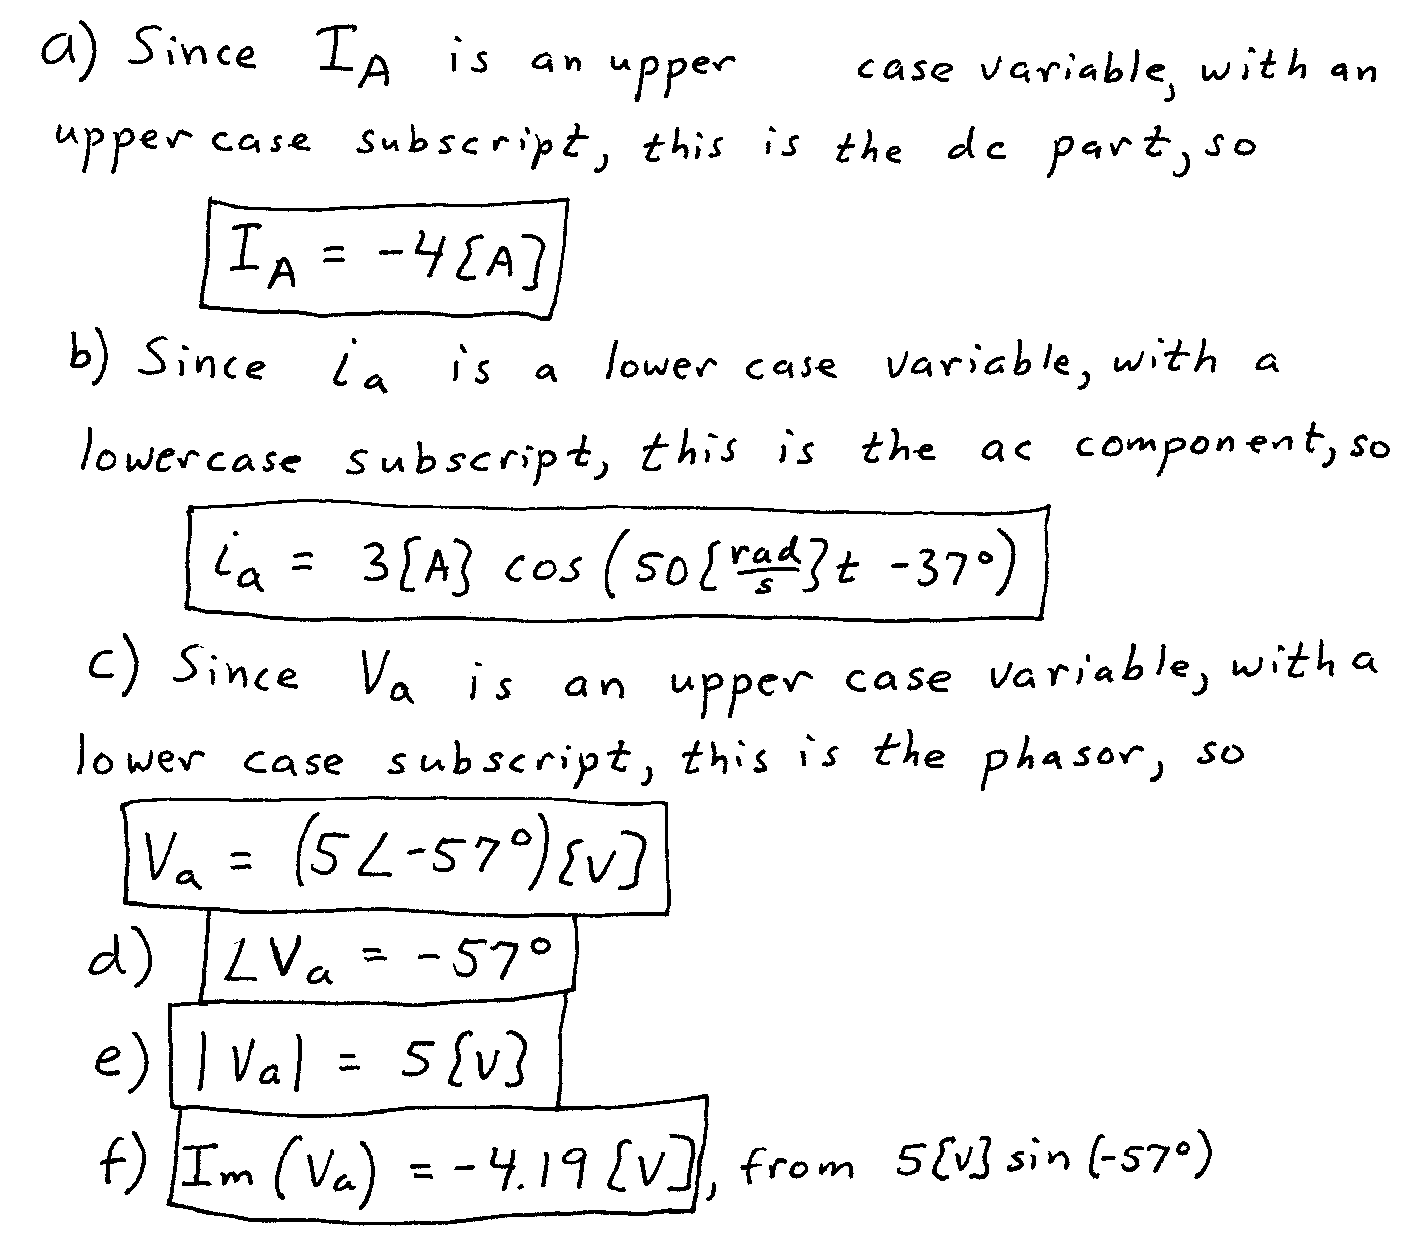 a) Since I_A is an upper case variable, with an
upper case subscript, this is the dc part, so
I_A = -4 [A]
b) Since i_a is a lower case variable, with a
lowercase subscript, this is the ac component, so
i_a = 3[A] cos (50 [rad/s] t -37°)
c) Since V_a is an upper case variable, with a
lower case subscript, this is the phasor, so
V_a = (5∠-57°)[V]
d) ∠V_a = -57°
e) |V_a| = 5[V]
f) Im (V_a) = -4.19 [V], from 5[V] sin (-57°)